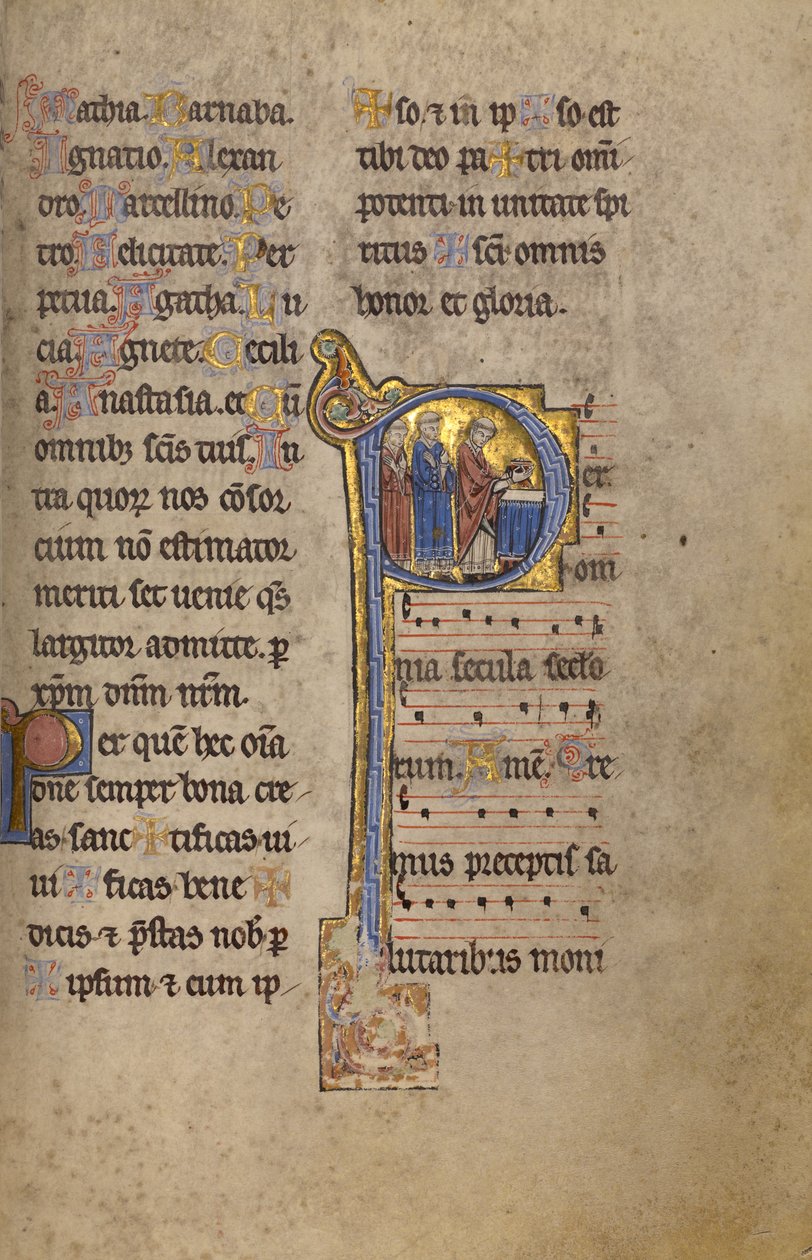 Mathia. Barnaba.
Ignatio. Alexan
dro. Marcellino. Pe
tro. Felicitate. Per
petua. Agatha. Lu
cia. Agnete. Cecili
a. Anastasia. et Cū
omnibꝫ scīs tuis. In
tra quoꝝ nos cōsor
cium nō estimator
meriti set uenie qs̄
largitor admitte. ꝑ
xp̄m dn̄m nr̄m.
Per quē hec oīa
dn̄e semper bona cre-
as sanc ✝ tificas ui-
ui ✝ ficas bene ✝
dicis ⁊ p̄stas nob̄ ꝑ
✝ ipsum ⁊ cum ip-
✝ so. ⁊ in ip ✝ so est
tibi deo pa ✝ tri omī-
potenti in unitate sp̄i
ritus ✝ scī omnis
honor et gloria.
Per
om
nia secula seclo
rum. Amē. Ore-
mus preceptis sa
lutaribus moni